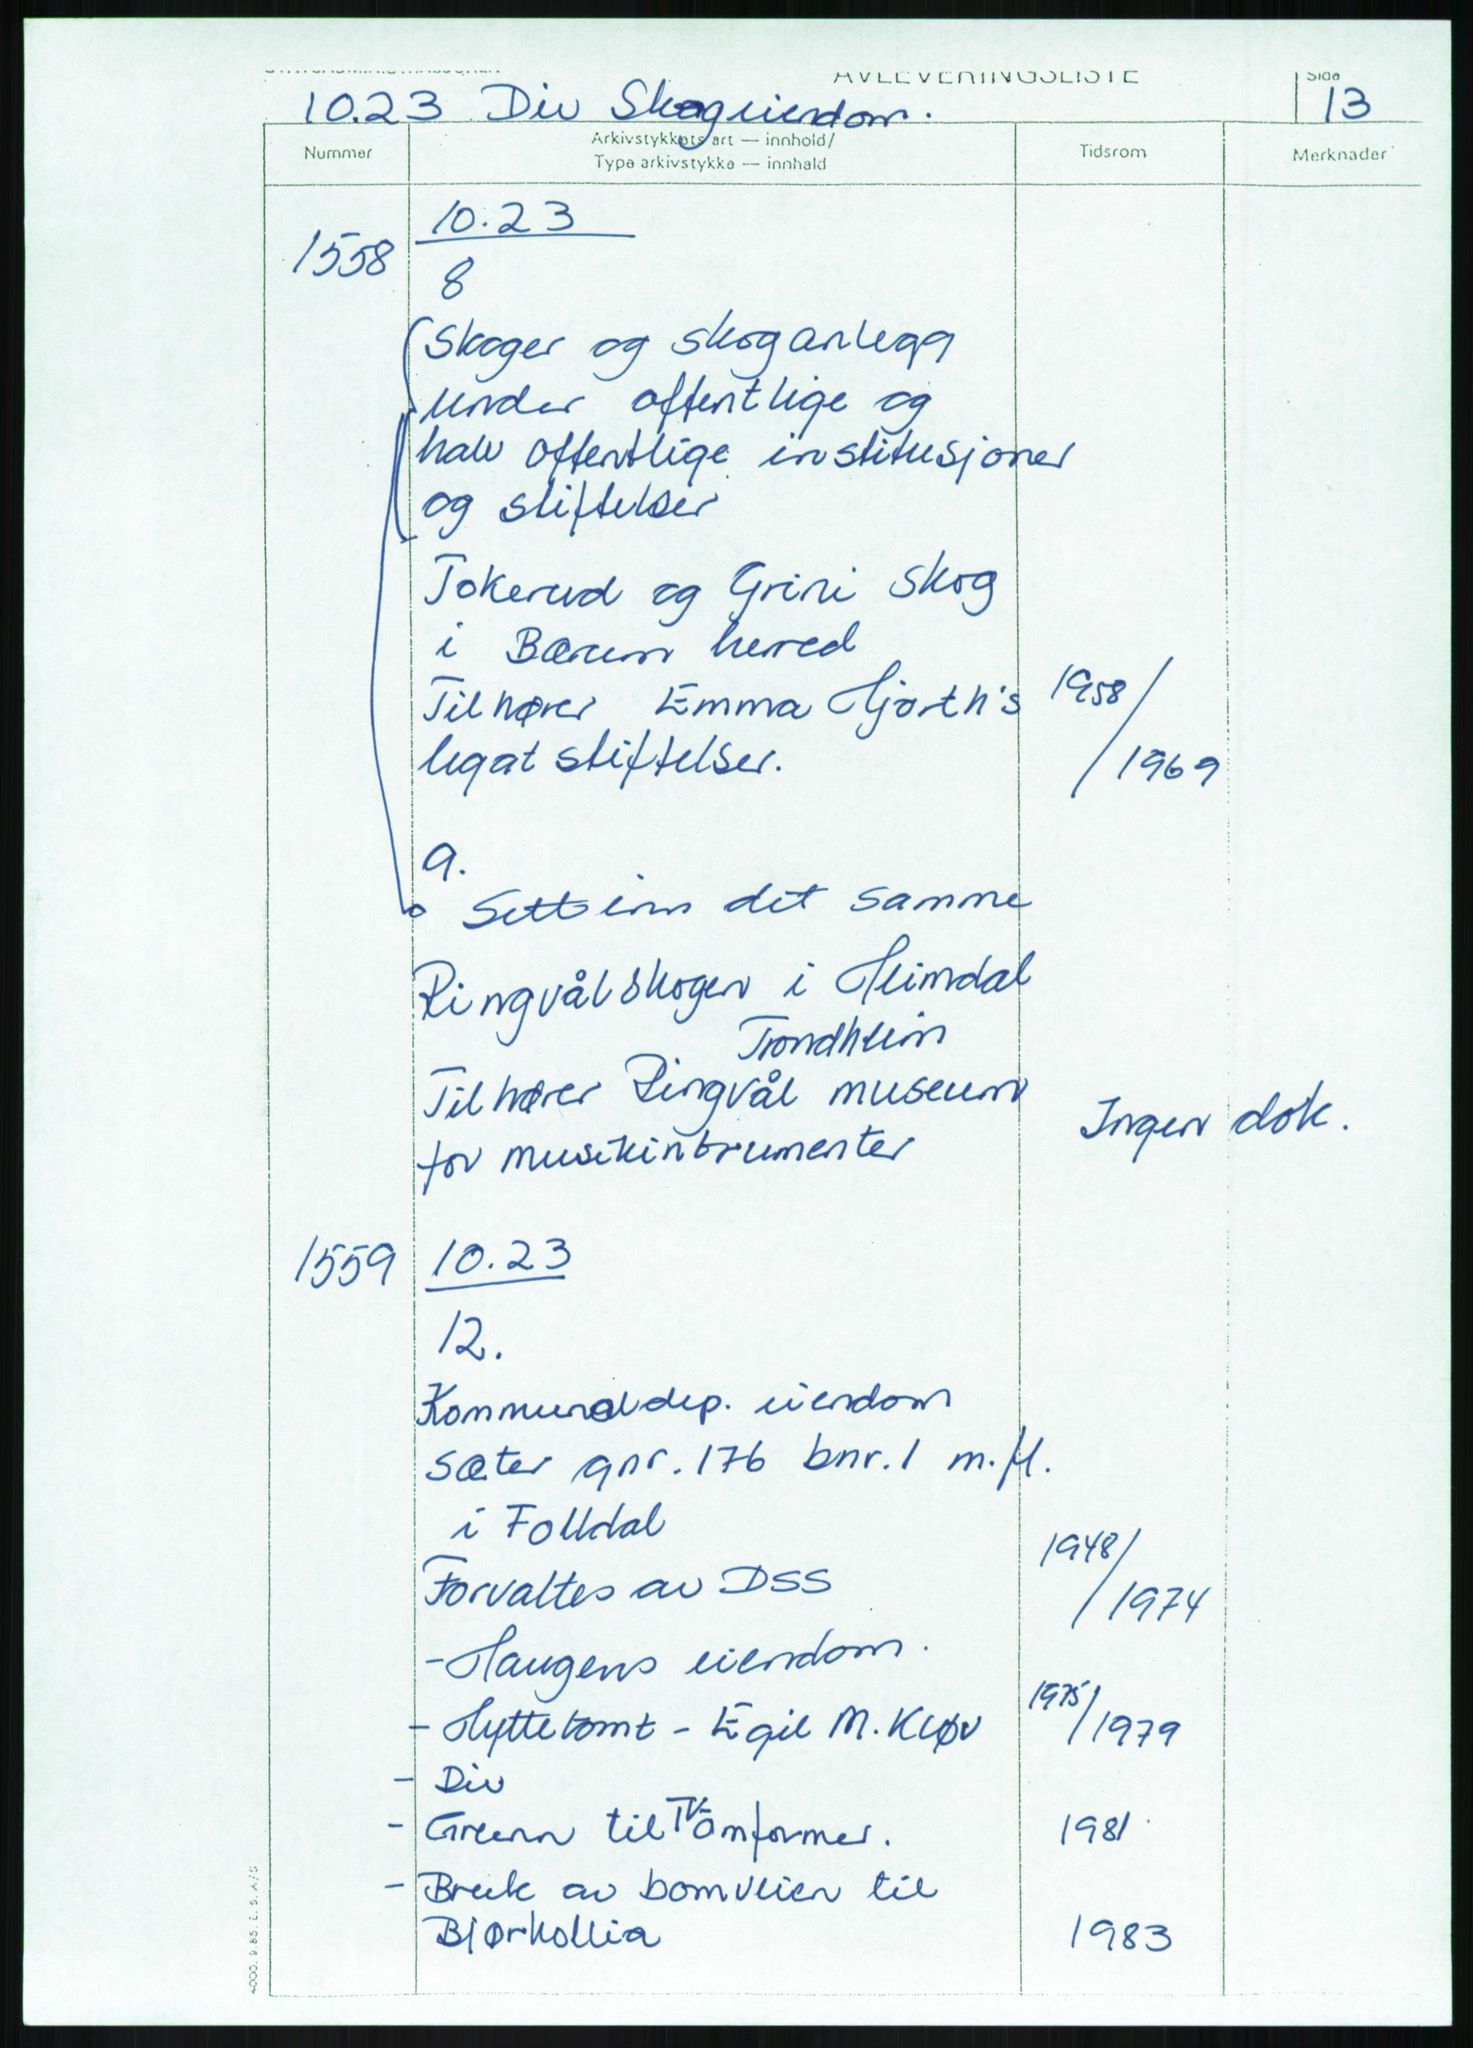 AVLEVERINGSLISTE
Side
10.23 Div Skogeiendom.
13
Nummer
Arkivstykkets art — innhold/
Type arkivstykke — innhald
Tidsrom
Merknader
10.23
1558
8
Skoger og skoganlegg
under offentlige og
halv offentlige institusjoner
og stiftelser
Tokerud og Grini skog
i Bærum herred
Tilhører Emma Hjorth's 1958/
legat stiftelser. 1969
9.
Sett inn det samme
Ringvålskogen i Heimdal
Trondheim
Tilhører Ringvål museum
for musikkintrumenter Ingen dok.
1559 10.23
12.
Kommunaldep. eiendom
Sæter gnr. 176 bnr. 1 m.fl.
i Folldal
Forvaltes av DSS 1948/1974
- Haugens eiendom.
- Hyttetomt - Egil M. Kløv 1975/1979
- Div
- Grunn til TV-omformer. 1981
- Bruk av bomveien til
Bjørkollia 1983
4000. 9.85. E. S. A/S